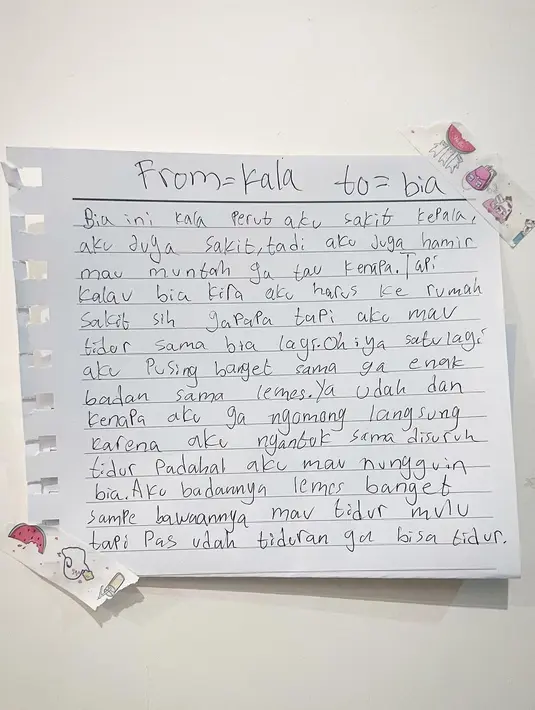 From=Kala to=bia
Bia ini Kala Perut aku sakit kepala,
aku Juga sakit, tadi aku Juga hamir
mau muntah ga tau kenapa. Tapi
kalau bia kira aku harus ke rumah
sakit sih gapapa tapi aku mau
tidur sama bia lagi. Oh iya satu lagi
aku Pusing banget sama ga enak
badan sama lemes. Ya udah dan
kenapa aku ga ngomong langsung
karena aku ngantuk sama disuruh
tidur Padahal aku mau nungguin
bia. Aku badannya lemes banget
sampe bawaannya mau tidur mulu
tapi Pas udah tiduran ga bisa tidur.